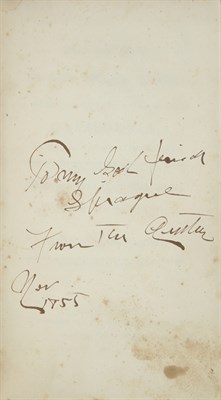 To my good friend
Sprague
From The Author
Nov
1855